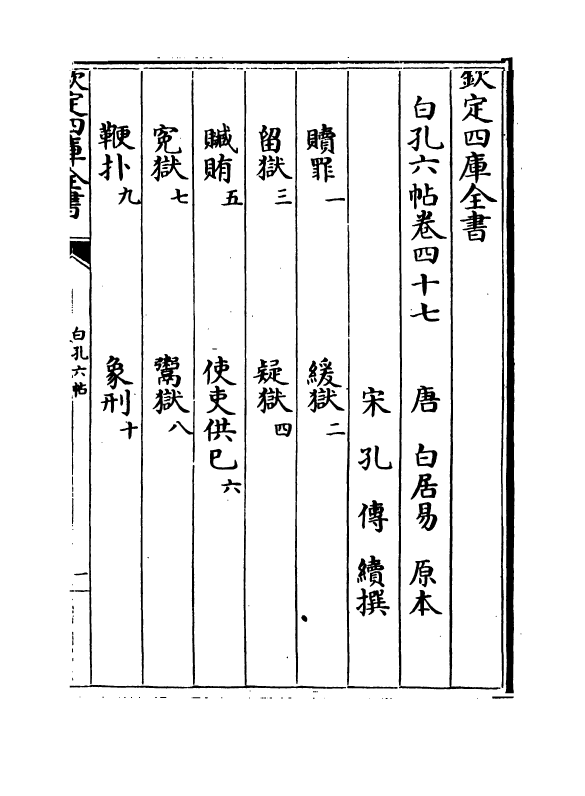 欽定四庫全書
白孔六帖卷四十七　唐　白居易　原本
宋　孔　傳　續撰
贖罪一　緩獄二
留獄三　疑獄四
贓賄五　使吏供已六
寃獄七　鬻獄八
鞭扑九　象刑十
欽定四庫全書
白孔六帖
一